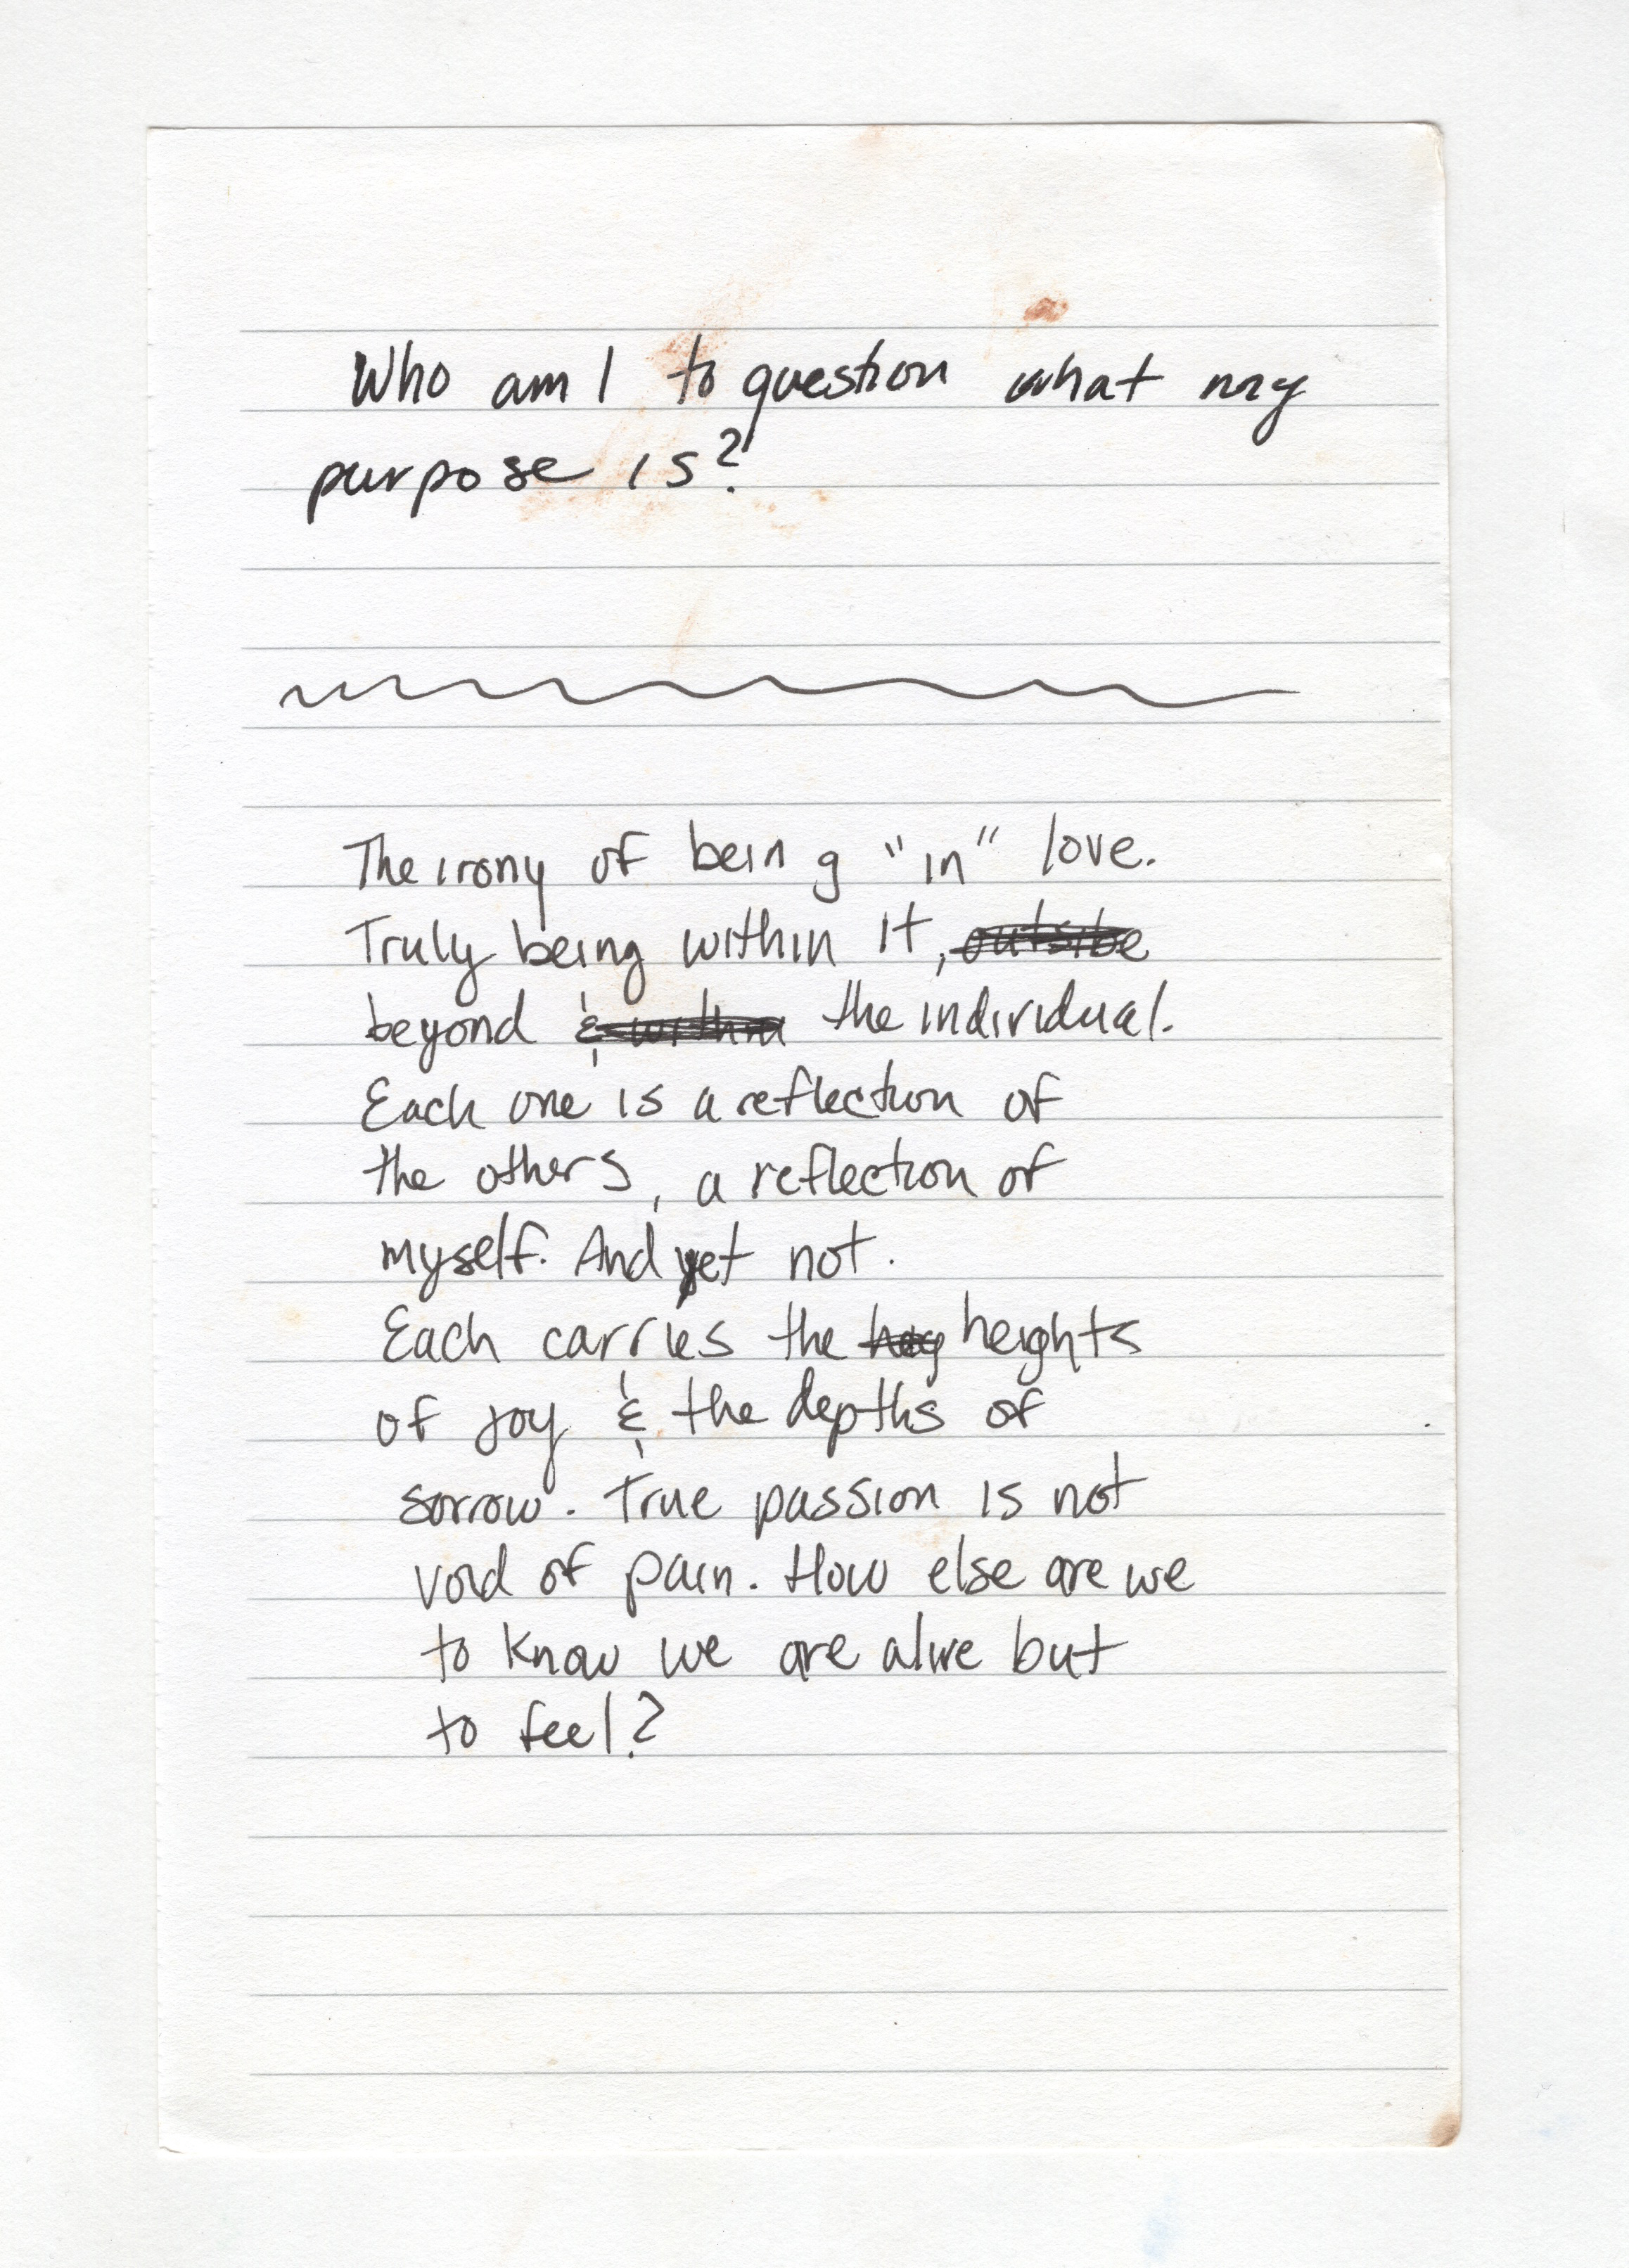 Who am I to question what my
purpose is?
The irony of being "in" love.
Truly being within it, outside
beyond & within the individual.
Each one is a reflection of
the others, a reflection of
myself. And yet not.
Each carries the heights
of joy & the depths of
sorrow. True passion is not
void of pain. How else are we
to know we are alive but
to feel?